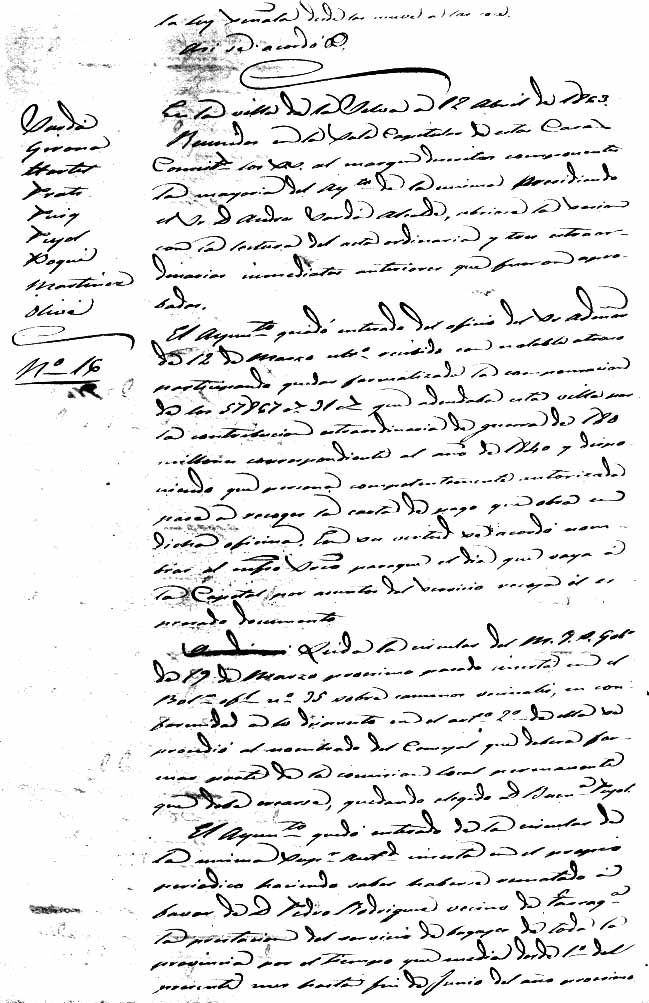 la ley señala desde las nueve a las once.
Así se acordó
En la villa de la Selva a 12 Abril de 1863.
Sardá
Gerona
Prats
Puig
Pujol
Roqué
Martinez
Olivé
Nº 16
Reunidos en la Sala Capitular de estas Casas
Consist.s los SS. al margen descritos componente
la mayoria del Ay.to de la misma Presidiendo
el Sr. D. Andres Sardá Alcalde, abriose la sesion
con la lectura del acta ordinaria y tres extraor-
dinarias inmediatas anteriores que fueron apro-
badas.
El Ayunt.to quedó enterado del oficio del Sr. Admor
de 12 de Marzo ult.o recibido con notable atraso
participando quedar formalizada la compensacion
de los 57867 r. 31 que adeudaba esta villa por
la contribucion extraordinaria de guerra de 180
millones correspondiente al año de 1840 y dispo-
niendo que persona competentemente autorizada
pase a recoger la carta de pago que obra en
dicha oficina. En su virtud se acordó nom-
brar al Srio paraque el dia que vaya á
la Capital por asuntos del servicio recoja el es-
presado documento
Leida la circular del M. I. S. Gob.r
de 19 de Marzo proximo pasado inserta en el
Bol.n ofl. nº 35 sobre caminos vecinales, en con-
formidad a lo dispuesto en el artº 2º de ella se
procedió al nombrado del Concejal que debera for-
mar parte de la comision local permanente
que debe crearse, quedando elegido D. Buen.a Pujol.
El Ayunt.to quedó enterado de la circular de
la misma Sup.r Aut.d inserta en el propio
periodico haciendo saber haberse rematado á
favor de D. Pedro Rodriguez vecino de Tarrag.a
la prestacion del servicio de bagages de toda la
provincia por el tiempo que media desde 1º del
presente mes hasta fin de Junio del año proximo